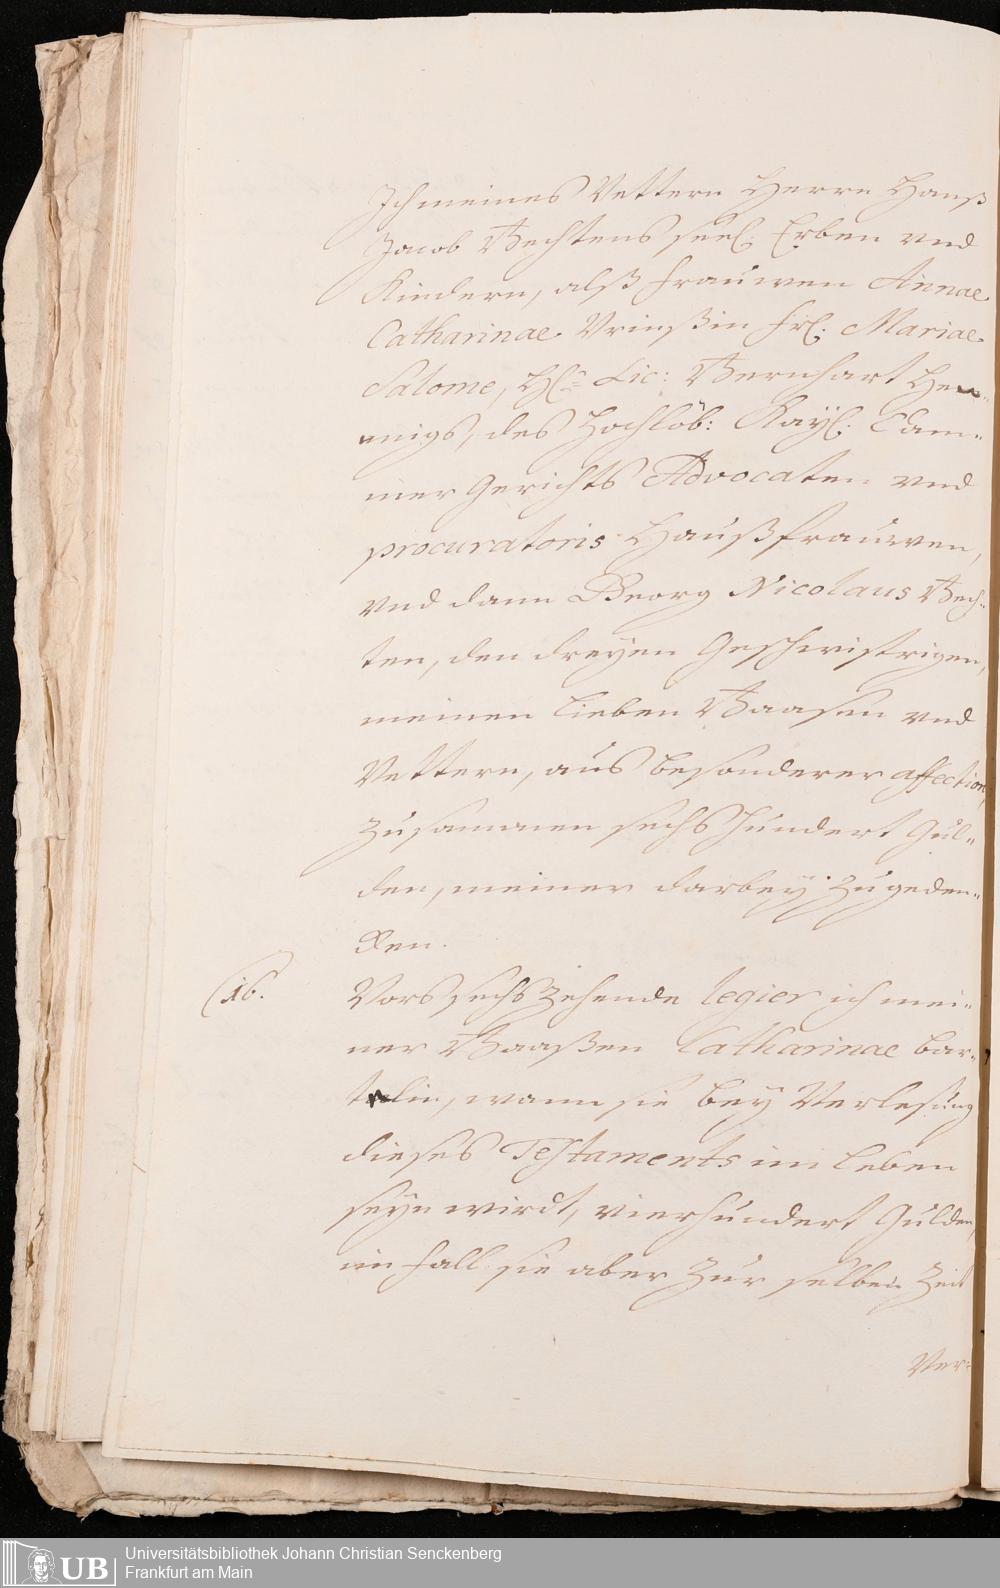 Ich meines Vettern Herrn Hanß
Jacob Bechtens seel. Erben vnd
Kindern, alß Frauwen Annae
Catharinae Vrinßin Frl. Mariae
Salome, Hl. Lic: Bernhart Hen-
nigs, des Hochlöb: Kayl. Cam-
mer Gerichts Advocaten vnd
procuratoris Haußfrauwen,
vnd dann Georg Nicolaus Bech-
ten, den dreyen Geschwistrigen,
meinen lieben Baasen vnd
Vettern, aus besonderer affection,
zusammen sechs hundert Gul-
den, meiner darbey zu geden-
cken.
16. Vors sechszehende legier ich mei-
ner Baaßen Catharinae Bar-
lin, wann sie bey Verlesung
dieses Testaments im leben
seyn wirdt, vierhundert Gulden,
im fall sie aber zur selben Zeit
Ver-
UB
Universitätsbibliothek Johann Christian Senckenberg
Frankfurt am Main